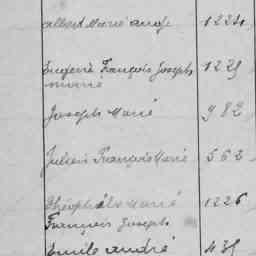 Albert Marie Ange 1224
Eugène François Joseph 1229
Marie
Joseph Marie 982
Julien François Marie 562
Théophile Marie 1226
François Joseph
Emile André 439